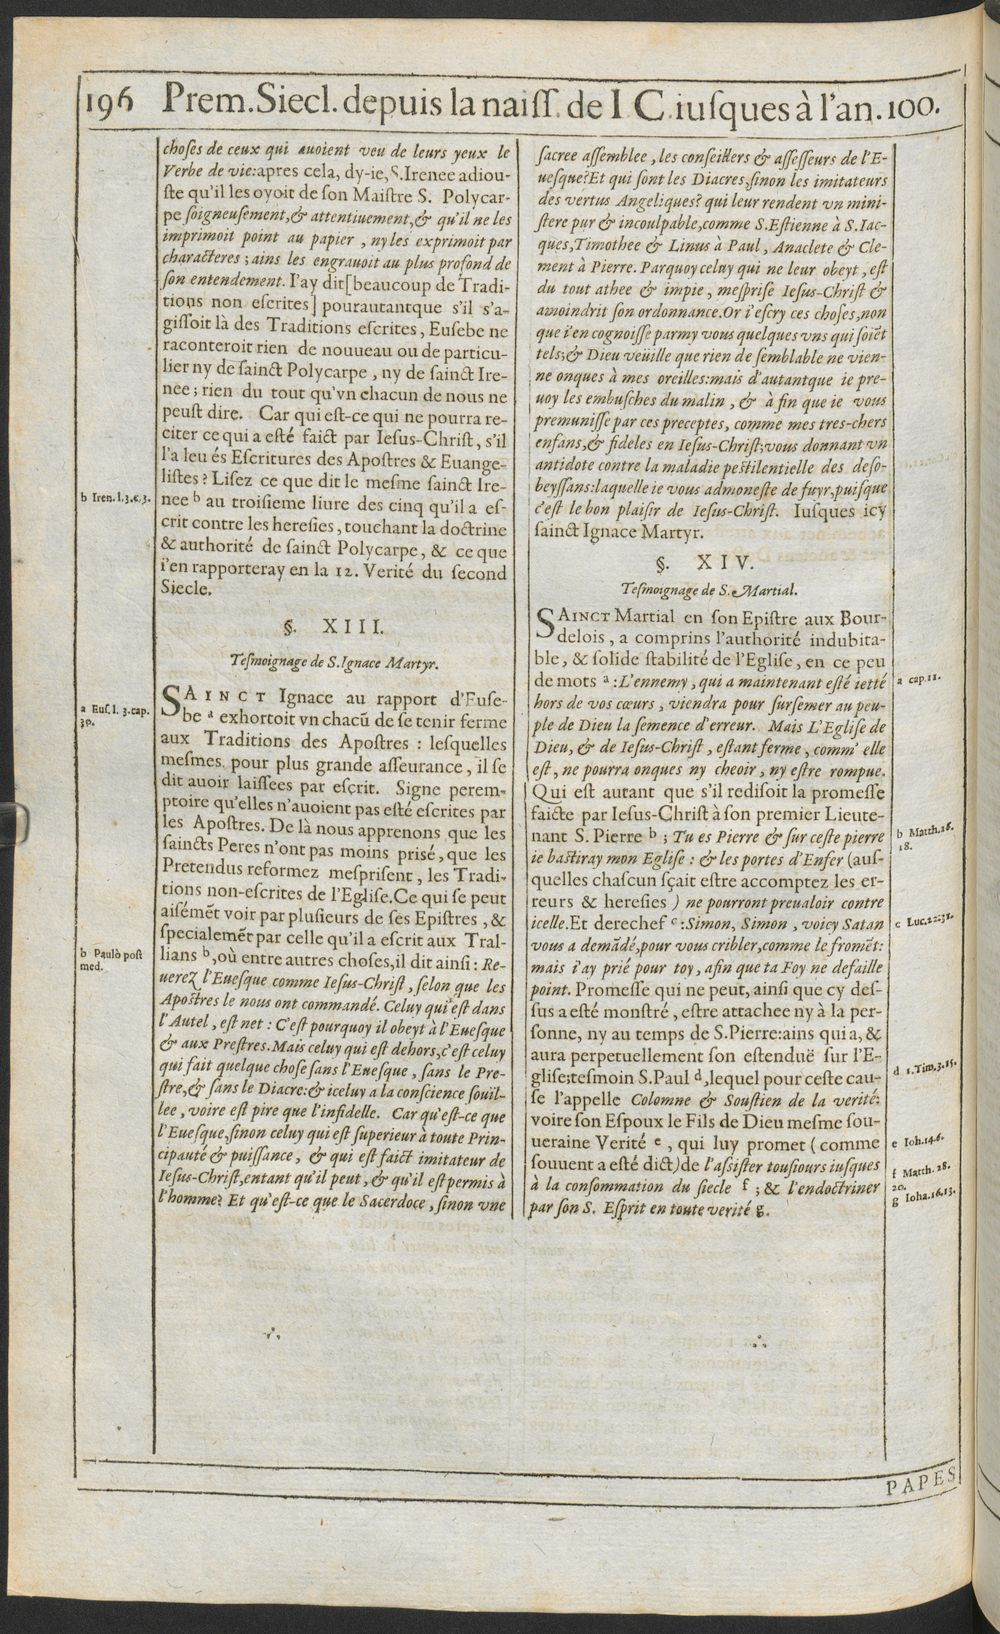 196 Prem. Siecl. depuis la naiſſ. de I C. iuſques à l'an. 100.
choſes de ceux qui auoient veu de leurs yeux le
Verbe de vie: apres cela, dy-ie, S. Irenee adiou-
ſte qu'il les oyoit de ſon Maiſtre S. Polycar-
pe ſoigneuſement, & attentiuement, & qu'il ne les
imprimoit point au papier, ny les exprimoit par
characteres; ains les engrauoit au plus profond de
ſon entendement. I'ay dit [beaucoup de Tradi-
tions non eſcrites] pourautantque s'il s'a-
giſſoit là des Traditions eſcrites, Euſebe ne
raconteroit rien de nouueau ou de particu-
lier ny de ſainct Polycarpe, ny de ſainct Ire-
nee; rien du tout qu'vn chacun de nous ne
peuſt dire. Car qui eſt-ce qui ne pourra re-
citer ce qui a eſté faict par Ieſus-Chriſt, s'il
l'a leu és Eſcritures des Apoſtres & Euange-
liſtes? Liſez ce que dit le meſme ſainct Ire-
b Iren. l. 3. c. 3.
nee b au troiſieme liure des cinq qu'il a eſ-
crit contre les hereſies, touchant la doctrine
& authorité de ſainct Polycarpe, & ce que
i'en rapporteray en la 12. Verité du ſecond
Siecle.
§. XIII.
Teſmoignage de S. Ignace Martyr.
SAINCT Ignace au rapport d'Euſe-
a Euſ. l. 3. cap.
30.
be a exhortoit vn chacũ de ſe tenir ferme
aux Traditions des Apoſtres: leſquelles
meſmes pour plus grande aſſeurance, il ſe
dit auoir laiſſees par eſcrit. Signe perem-
ptoire qu'elles n'auoient pas eſté eſcrites par
les Apoſtres. De là nous apprenons que les
ſaincts Peres n'ont pas moins priſé, que les
Pretendus reformez meſpriſent, les Tradi-
tions non-eſcrites de l'Egliſe. Ce qui ſe peut
aiſémẽt voir par pluſieurs de ſes Epiſtres, &
ſpecialemẽt par celle qu'il a eſcrit aux Tral-
b Paulò poſt
med.
lians b, où entre autres choſes, il dit ainſi: Re-
uerez l'Eueſque comme Ieſus-Chriſt, ſelon que les
Apoſtres le nous ont commandé. Celuy qui eſt dans
l'Autel, eſt net: C'eſt pourquoy il obeyt à l'Eueſque
& aux Preſtres. Mais celuy qui eſt dehors, c'eſt celuy
qui fait quelque choſe ſans l'Eueſque, ſans le Pre-
ſtre, & ſans le Diacre: & iceluy a la conſcience ſoüil-
lee, voire eſt pire que l'infidelle. Car qu'eſt-ce que
l'Eueſque, ſinon celuy qui eſt ſuperieur à toute Prin-
cipauté & puiſſance, & qui eſt faict imitateur de
Ieſus-Chriſt, entant qu'il peut, & qu'il eſt permis à
l'homme? Et qu'eſt-ce que le Sacerdoce, ſinon vne
ſacree aſſemblee, les conſeillers & aſſeſſeurs de l'E-
ueſque? Et qui ſont les Diacres, ſinon les imitateurs
des vertus Angeliques? qui leur rendent vn mini-
ſtere pur & incoulpable, comme S. Eſtienne à S. Iac-
ques, Timothee & Linus à Paul, Anaclete & Cle-
ment à Pierre. Parquoy celuy qui ne leur obeyt, eſt
du tout athee & impie, meſpriſe Ieſus-Chriſt &
amoindrit ſon ordonnance. Or i'eſcry ces choſes, non
que i'en cognoiſſe parmy vous quelques vns qui ſoiẽt
tels; & Dieu veüille que rien de ſemblable ne vien-
ne onques à mes oreilles: mais d'autantque ie pre-
uoy les embuſches du malin, & à fin que ie vous
premuniſſe par ces preceptes, comme mes tres-chers
enfans, & fideles en Ieſus-Chriſt; vous donnant vn
antidote contre la maladie peſtilentielle des deſo-
beyſſans: laquelle ie vous admoneſte de fuyr, puiſque
c'eſt le bon plaiſir de Ieſus-Chriſt. Iuſques icy
ſainct Ignace Martyr.
§. XIV.
Teſmoignage de S. Martial.
SAINCT Martial en ſon Epiſtre aux Bour-
delois, a comprins l'authorité indubita-
ble, & ſolide ſtabilité de l'Egliſe, en ce peu
de mots a: L'ennemy, qui a maintenant eſté ietté
a cap. 11.
hors de vos cœurs, viendra pour ſurſemer au peu-
ple de Dieu la ſemence d'erreur. Mais L'Egliſe de
Dieu, & de Ieſus-Chriſt, eſtant ferme, comm' elle
eſt, ne pourra onques ny cheoir, ny eſtre rompue.
Qui eſt autant que s'il rediſoit la promeſſe
faicte par Ieſus-Chriſt à ſon premier Lieute-
nant S. Pierre b; Tu es Pierre & ſur ceſte pierre
b Matth. 16.
18.
ie baſtiray mon Egliſe: & les portes d'Enfer (auſ-
quelles chaſcun ſçait eſtre accomptez les er-
reurs & hereſies) ne pourront preualoir contre
icelle. Et derechef c: Simon, Simon, voicy Satan
c Luc. 22. 31.
vous a demãdé, pour vous cribler, comme le fromẽt:
mais i'ay prié pour toy, afin que ta Foy ne defaille
point. Promeſſe qui ne peut, ainſi que cy deſ-
ſus a eſté monſtré, eſtre attachee ny à la per-
ſonne, ny au temps de S. Pierre: ains qui a, &
aura perpetuellement ſon eſtenduë ſur l'E-
gliſe; teſmoin S. Paul d, lequel pour ceſte cau-
d 1. Tim. 3. 15.
ſe l'appelle Colomne & Souſtien de la verité:
voire ſon Eſpoux le Fils de Dieu meſme ſou-
ueraine Verité e, qui luy promet (comme
e Ioh. 14. 6.
ſouuent a eſté dict) de l'aſſiſter touſiours iuſques
f Matth. 28.
20.
à la conſommation du ſiecle f; & l'endoctriner
g Ioha. 16. 13.
par ſon S. Eſprit en toute verité g.
PAPES